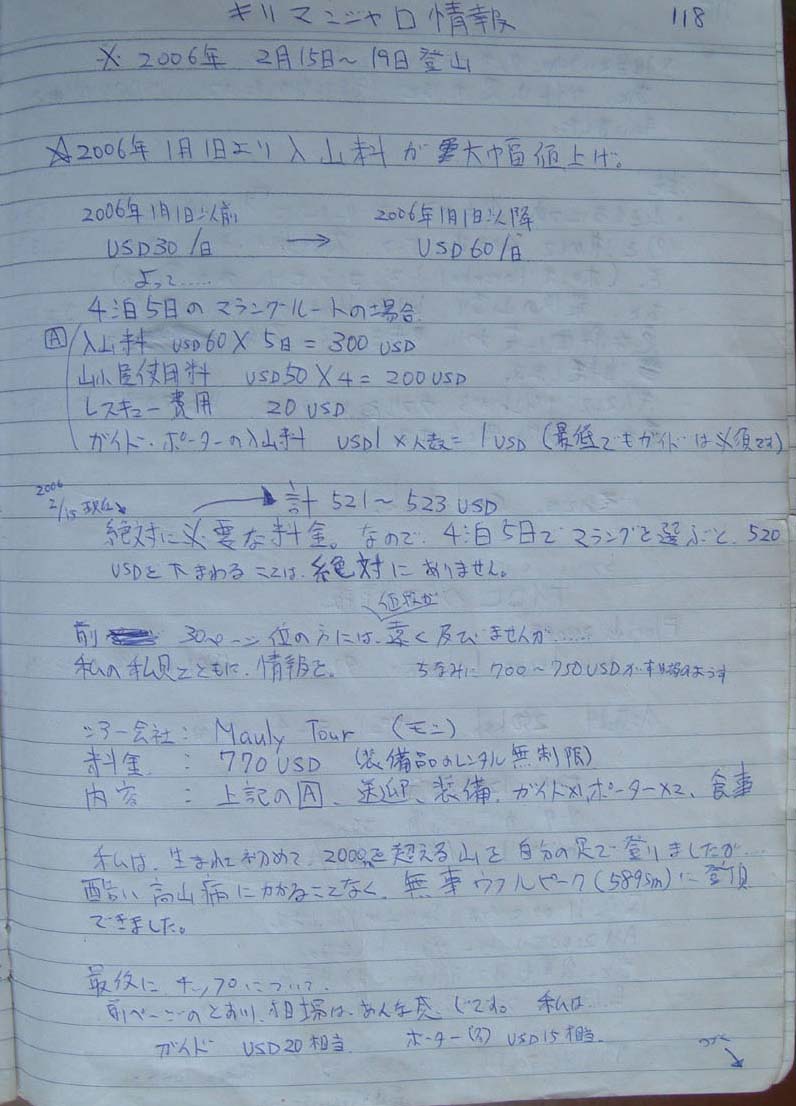 キリマンジャロ情報 118
※ 2006年 2月15日〜19日 登山
☆2006年1月1日より 入山料が 大幅値上げ。
2006年1月1日以前 2006年1月1日以降
USD30/日 → USD60/日
よって……
4泊5日の マラングールートの場合
A 入山料 USD60×5日=300 USD
山小屋使用料 USD50×4=200USD
レスキュー費用 20 USD
ガイド・ポーターの入山料 USD1×人数=1USD (最低でもガイドは必須です)
2006 2/15 現在 → 計 521〜523 USD
絶対に必要な料金。なので、4泊5日で マラングを選ぶと、520
USDを下まわることは、絶対にありません。
値段が
前 30ページ位の方には、遠く及びませんが……
私の私見とともに、情報を。 ちなみに 700〜750USDが相場のようです
ツアー会社: Mauly Tour (モシ)
料金 : 770USD (装備品のレンタル無制限)
内容 : 上記のA、送迎、装備、ガイド×1、ポーター×2、食事
私は、生まれて初めて、2000mを超える山を自分の足で登りましたが…
酷い高山病にかかることなく、無事ウフルピーク(5895m)に登頂
できました。
最後に チップについて、
前ページのとおり、相場は、あんな感じです。私は……
ガイド USD20相当 ポーター USD15相当
つづく